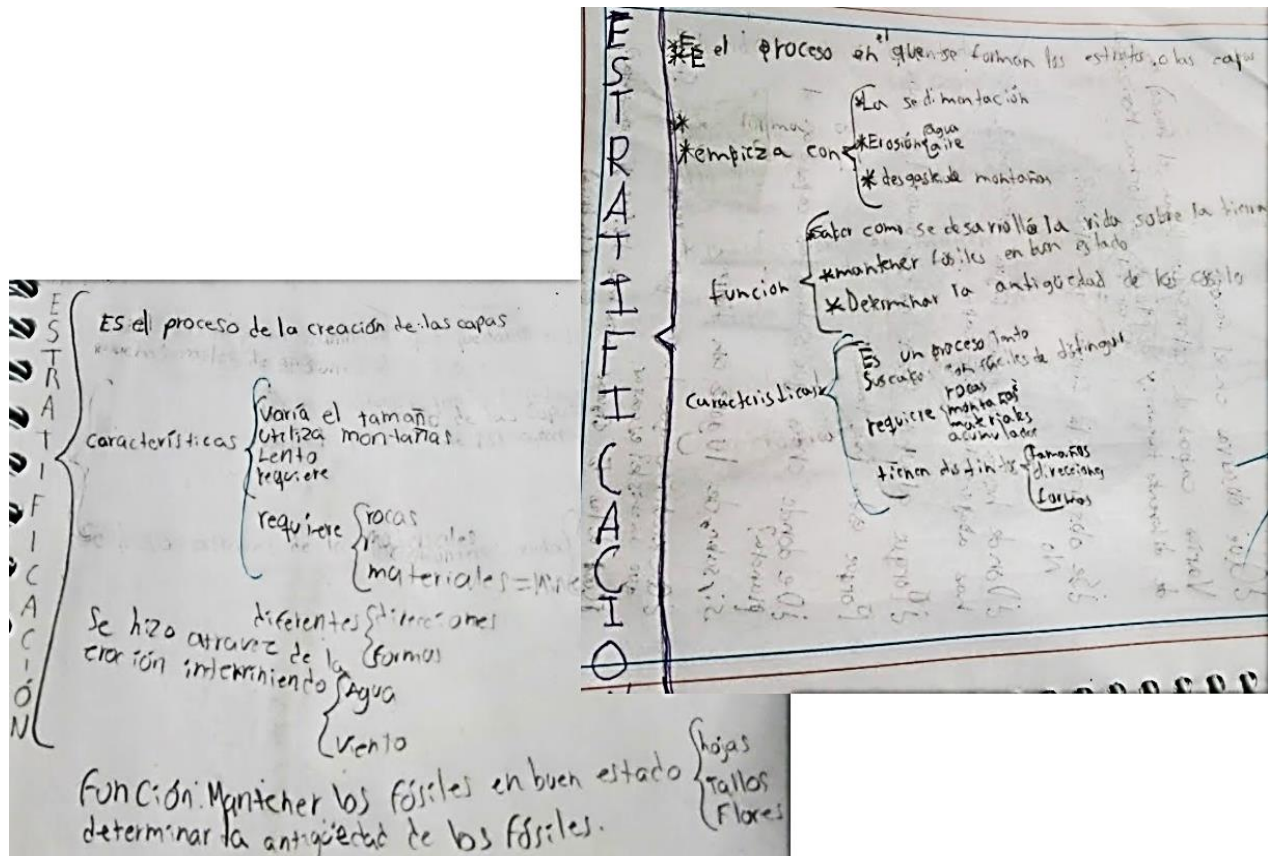 ESTRATIFICACIÓN
ES el proceso de la creación de las capas
características
Varía el tamaño
Utiliza montañas
Lento
requiere
requiere
rocas
materiales =
diferentes
direcciones
formas
Se hizo atravez de la
interviniendo
Agua
viento
Función: Mantener los fósiles en buen estado
hojas
Tallos
Flores
determinar la antigüedad de los fósiles.
ESTRATIFICACIO
el proceso en el que se forman los estratos o las capas
*empieza con
*La sedimentación
*Erosión
agua
aire
* desgaste de montañas
función
saber como se desarrolló la vida sobre la tierra
*mantener fósiles en buen estado
*Determinar la antigüedad de los
características
Es un proceso
son fáciles de distinguir
requiere
rocas
montañas
materiales
tienen distintos
tamaños
direcciones
formas